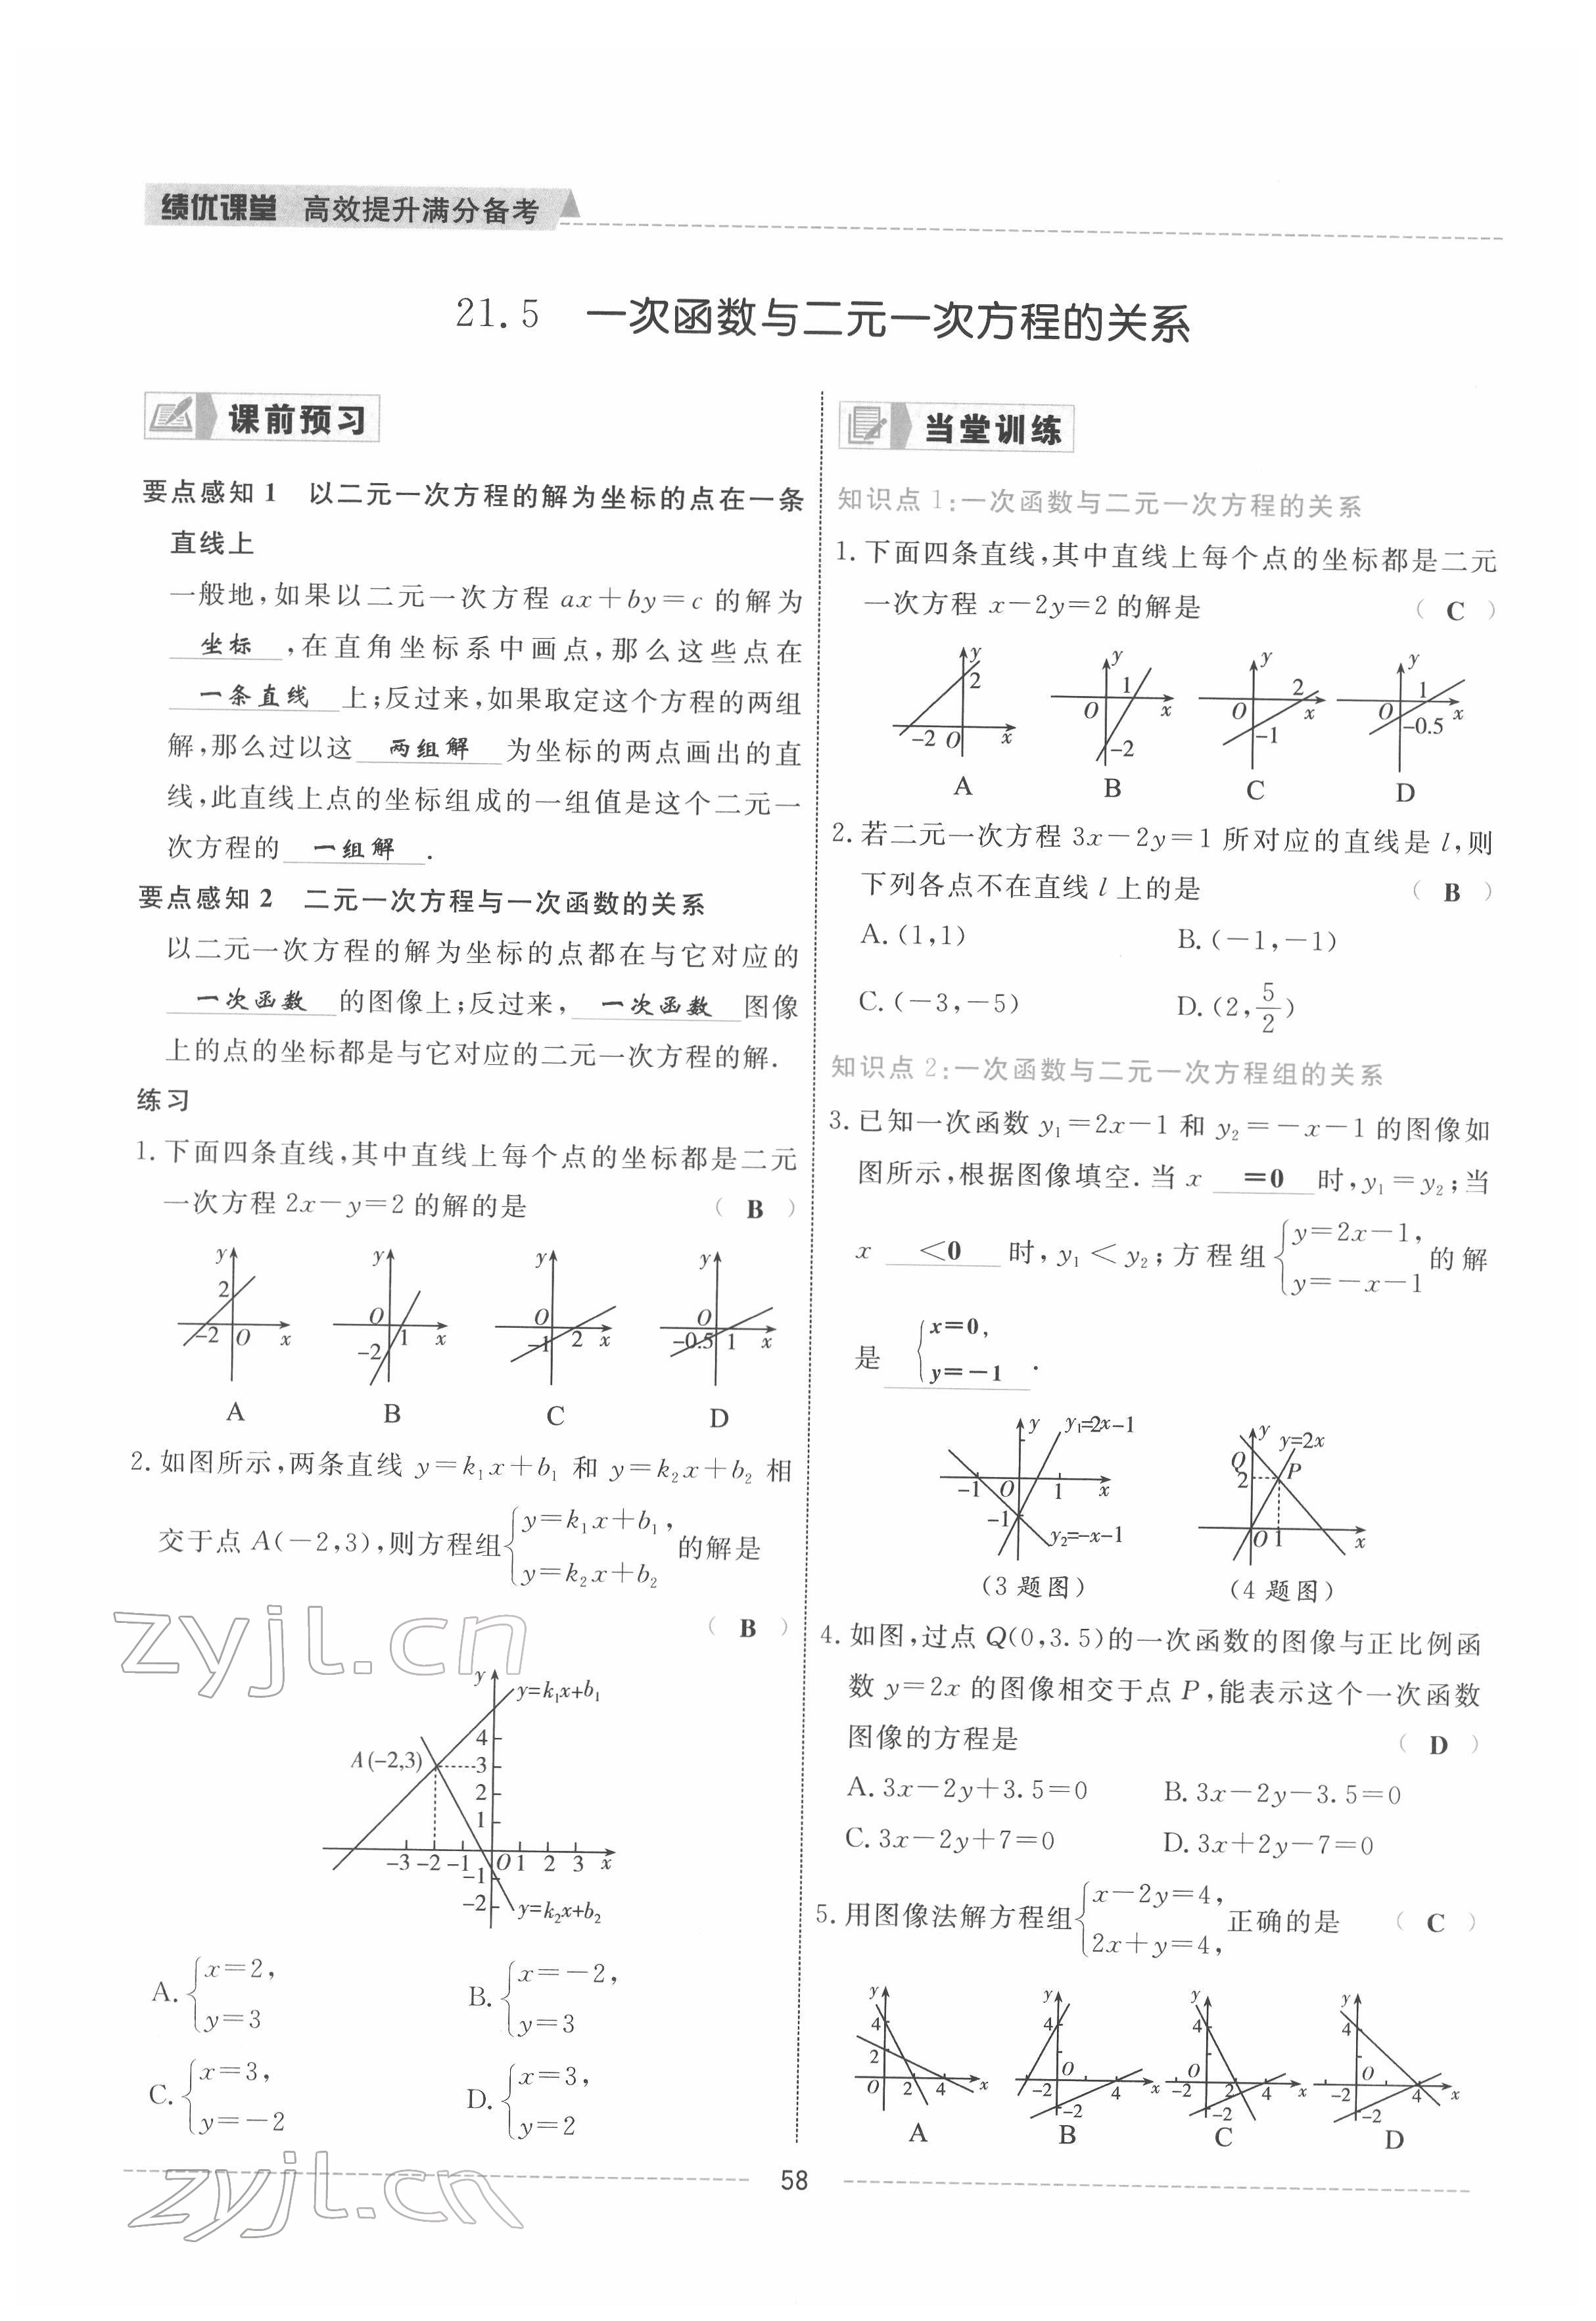 绩优课堂 高效提升满分备考
21.5 一次函数与二元一次方程的关系
课前预习
要点感知 1 以二元一次方程的解为坐标的点在一条
直线上
一般地,如果以二元一次方程 ax+by=c 的解为
坐标 ,在直角坐标系中画点,那么这些点在
一条直线 上;反过来,如果取定这个方程的两组
解,那么过以这 两组解 为坐标的两点画出的直
线,此直线上点的坐标组成的一组值是这个二元一
次方程的 一组解 .
要点感知 2 二元一次方程与一次函数的关系
以二元一次方程的解为坐标的点都在与它对应的
一次函数 的图像上;反过来, 一次函数 图像
上的点的坐标都是与它对应的二元一次方程的解.
练习
1.下面四条直线,其中直线上每个点的坐标都是二元
一次方程 2x-y=2 的解的是 ( B )
y 2 -2 O x
y O -2 1 x
y O -1 2 x
y O -0.5 1 x
A B C D
2.如图所示,两条直线 y=k₁x+b₁ 和 y=k₂x+b₂ 相
交于点 A(-2,3),则方程组{y=k₁x+b₁, y=k₂x+b₂ 的解是
( B )
y
y=k₁x+b₁
4
A(-2,3) 3
2
1
-3 -2 -1 O 1 2 3 x
-1
-2 y=k₂x+b₂
A.{x=2, y=3 B.{x=-2, y=3
C.{x=3, y=-2 D.{x=3, y=2
当堂训练
知识点 1:一次函数与二元一次方程的关系
1.下面四条直线,其中直线上每个点的坐标都是二元
一次方程 x-2y=2 的解是 ( C )
y 2 -2 O x
y 1 O x -2
y 2 O x -1
y 1 O x -0.5
A B C D
2.若二元一次方程 3x-2y=1 所对应的直线是 l,则
下列各点不在直线 l 上的是 ( B )
A.(1,1) B.(-1,-1)
C.(-3,-5) D.(2,5/2)
知识点 2:一次函数与二元一次方程组的关系
3.已知一次函数 y₁=2x-1 和 y₂=-x-1 的图像如
图所示,根据图像填空.当 x =0 时,y₁=y₂;当
x <0 时,y₁<y₂;方程组{y=2x-1, y=-x-1 的解
是 {x=0, y=-1 .
y y₁=2x-1 -1 O 1 x -1 y₂=-x-1
y y=2x Q 2 P O 1 x
(3 题图) (4 题图)
4.如图,过点 Q(0,3.5)的一次函数的图像与正比例函
数 y=2x 的图像相交于点 P,能表示这个一次函数
图像的方程是 ( D )
A.3x-2y+3.5=0 B.3x-2y-3.5=0
C.3x-2y+7=0 D.3x+2y-7=0
5.用图像法解方程组{x-2y=4, 2x+y=4, 正确的是 ( C )
y 4 2 O 2 4 x
y 4 O -2 4 x -2
y 4 O -2 2 4 x -2
y 4 O -2 4 x -2
A B C D
58
zyjl.cn
zyjl.cn